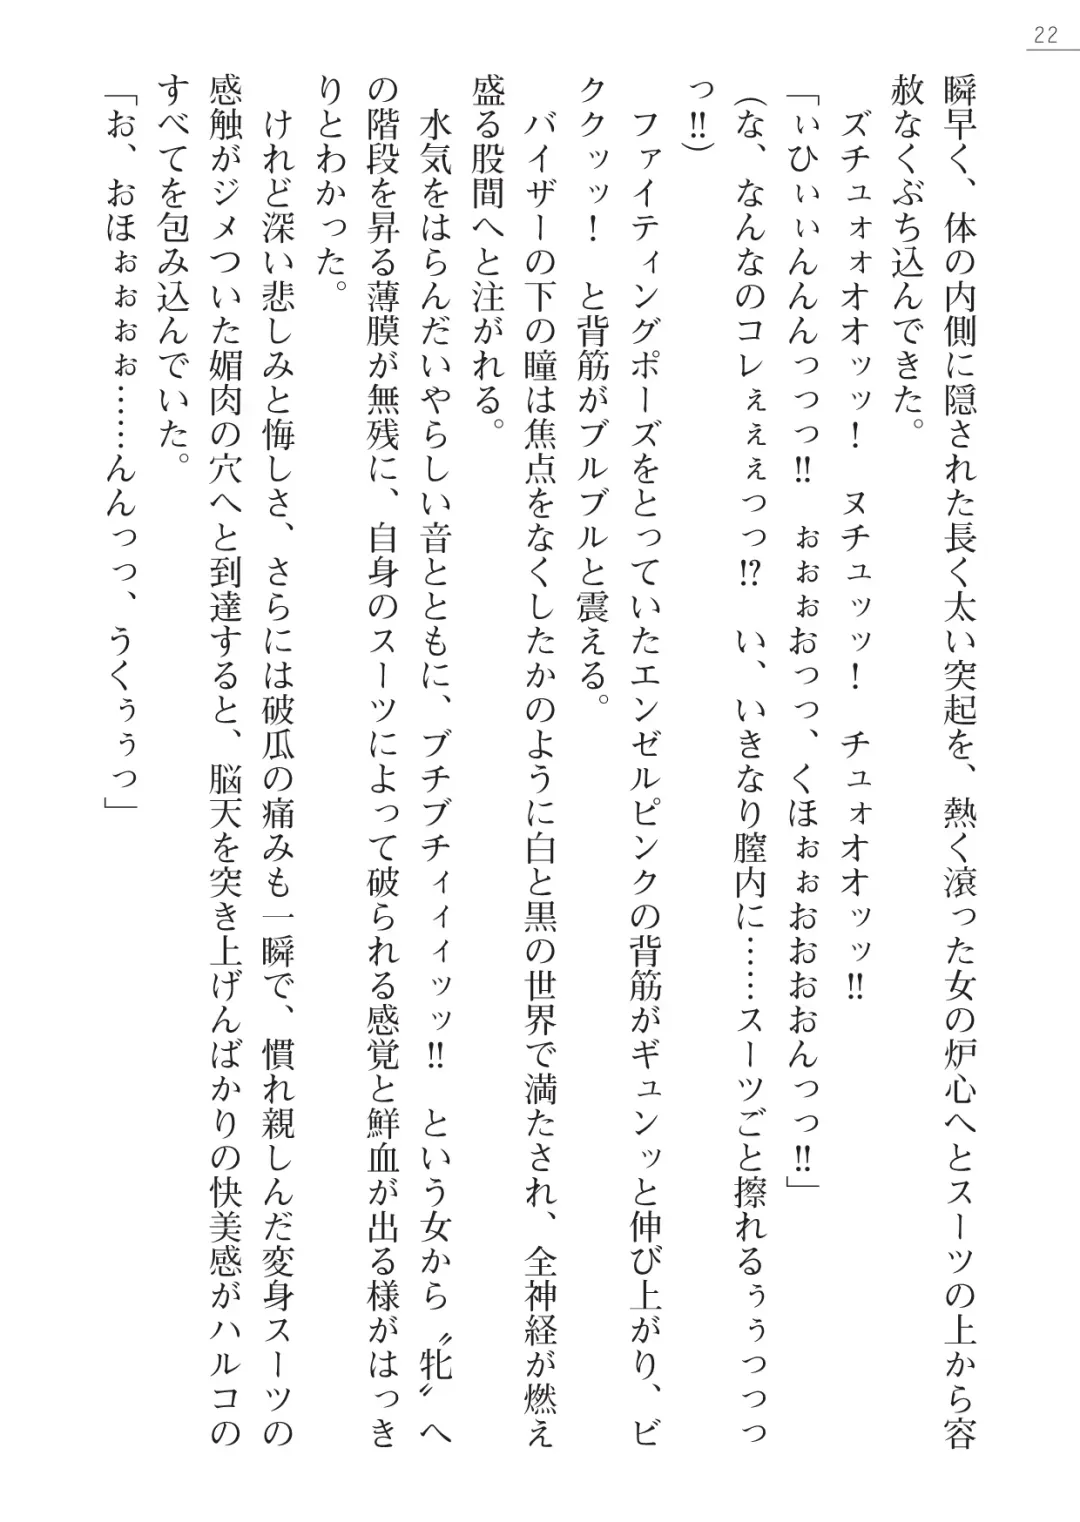 22
瞬早く、体の内側に隠された長く太い突起を、熱く滾った女の炉心へとスーツの上から容
赦なくぶち込んできた。
　ズチュォォオオッッ！　ヌチュッッ！　チュォオオッッ‼
「ぃひぃぃんんんっっっ‼　ぉぉぉおっっ、くほぉぉおおおおんっっ‼」
（な、なんなのコレぇぇぇっっ⁉　い、いきなり膣内に……スーツごと擦れるぅぅっっっ
っ‼）
　ファイティングポーズをとっていたエンゼルピンクの背筋がギュンッと伸び上がり、ビ
ククッッ！　と背筋がブルブルと震える。
　バイザーの下の瞳は焦点をなくしたかのように白と黒の世界で満たされ、全神経が燃え
盛る股間へと注がれる。
　水気をはらんだいやらしい音とともに、ブチブチィィィッッ‼　という女から〝牝〟へ
の階段を昇る薄膜が無残に、自身のスーツによって破られる感覚と鮮血が出る様がはっき
りとわかった。
　けれど深い悲しみと悔しさ、さらには破瓜の痛みも一瞬で、慣れ親しんだ変身スーツの
感触がジメついた媚肉の穴へと到達すると、脳天を突き上げんばかりの快美感がハルコの
すべてを包み込んでいた。
「お、おほぉぉぉぉ……んんっっ、うくぅぅっ」